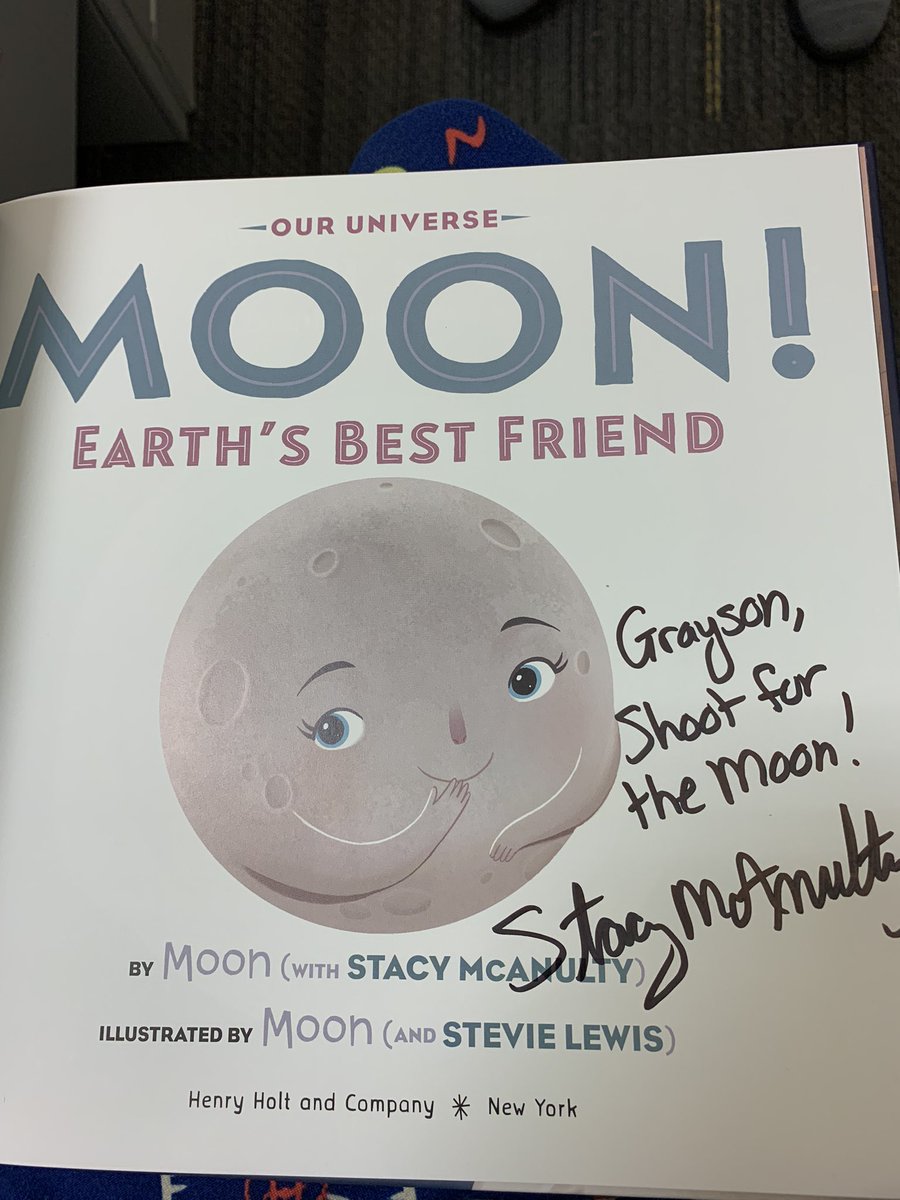 OUR UNIVERSE
MOON!
EARTH'S BEST FRIEND
Grayson,
Shoot for
the Moon!
Stacy McAnulty
BY Moon (WITH STACY MCANULTY)
ILLUSTRATED BY Moon (AND STEVIE LEWIS)
Henry Holt and Company * New York